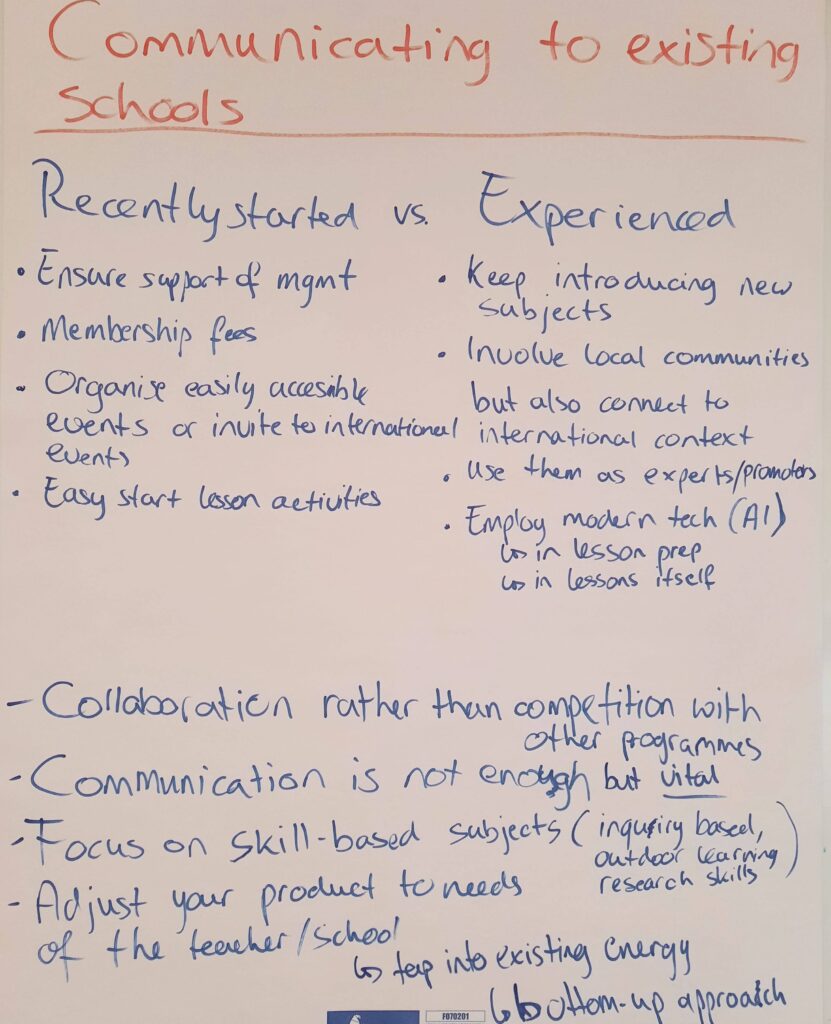 Communicating to existing
schools
Recently started vs. Experienced
• Ensure support of mgmt
• Membership fees
• Organise easily accesible
events or invite to international
events
• Easy start lesson activities
• Keep introducing new
subjects
• Involve local communities
but also connect to
international context
• Use them as experts/promotors
• Employ modern tech (AI)
↳ in lesson prep
↳ in lessons itself
- Collaboration rather than competition with
other programmes
- Communication is not enough but vital
- Focus on skill-based subjects (inquiry based,
outdoor learning
research skills)
- Adjust your product to needs
of the teacher/school
↳ tap into existing energy
↳ bottom-up approach
F070201